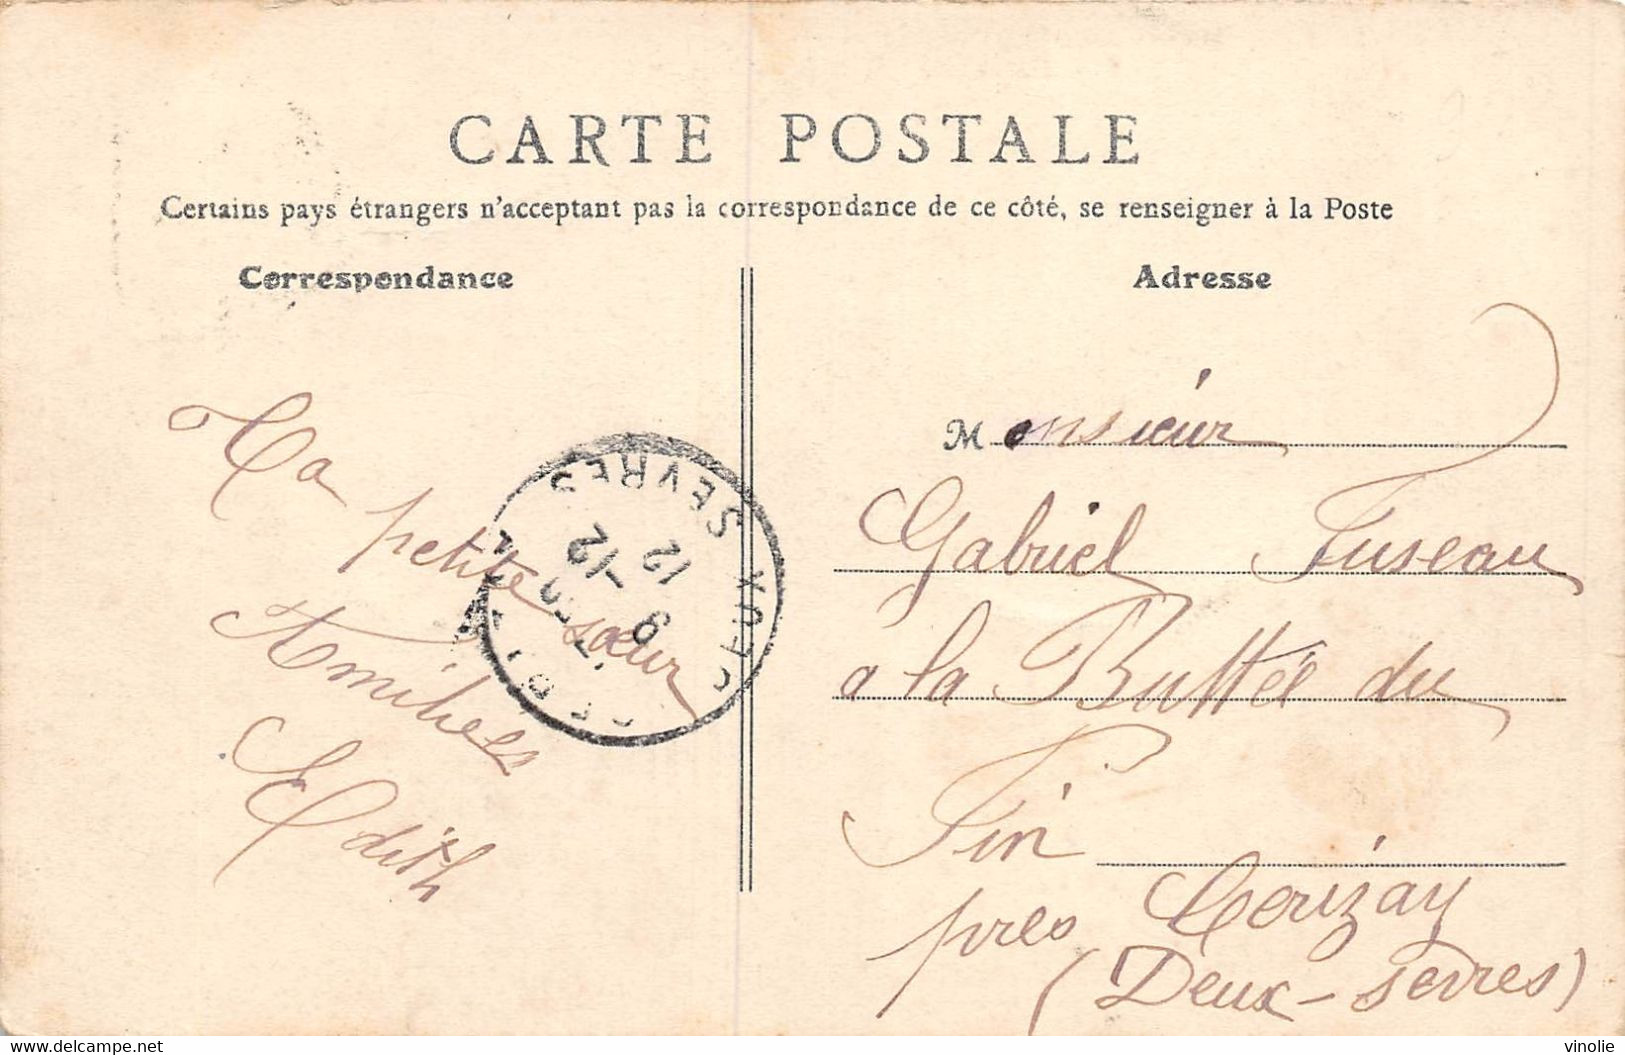 CARTE POSTALE
Certains pays étrangers n'acceptant pas la correspondance de ce côté, se renseigner à la Poste
Correspondance
Adresse
Ta
petite sœur
Edith
Monsieur
Gabriel Fuseau
à la Buttée du
Pin
près Cerizay
(Deux-Sevres)
CERIZAY
DEUX SEVRES
9
-12
12
www.delcampe.net
vinolie